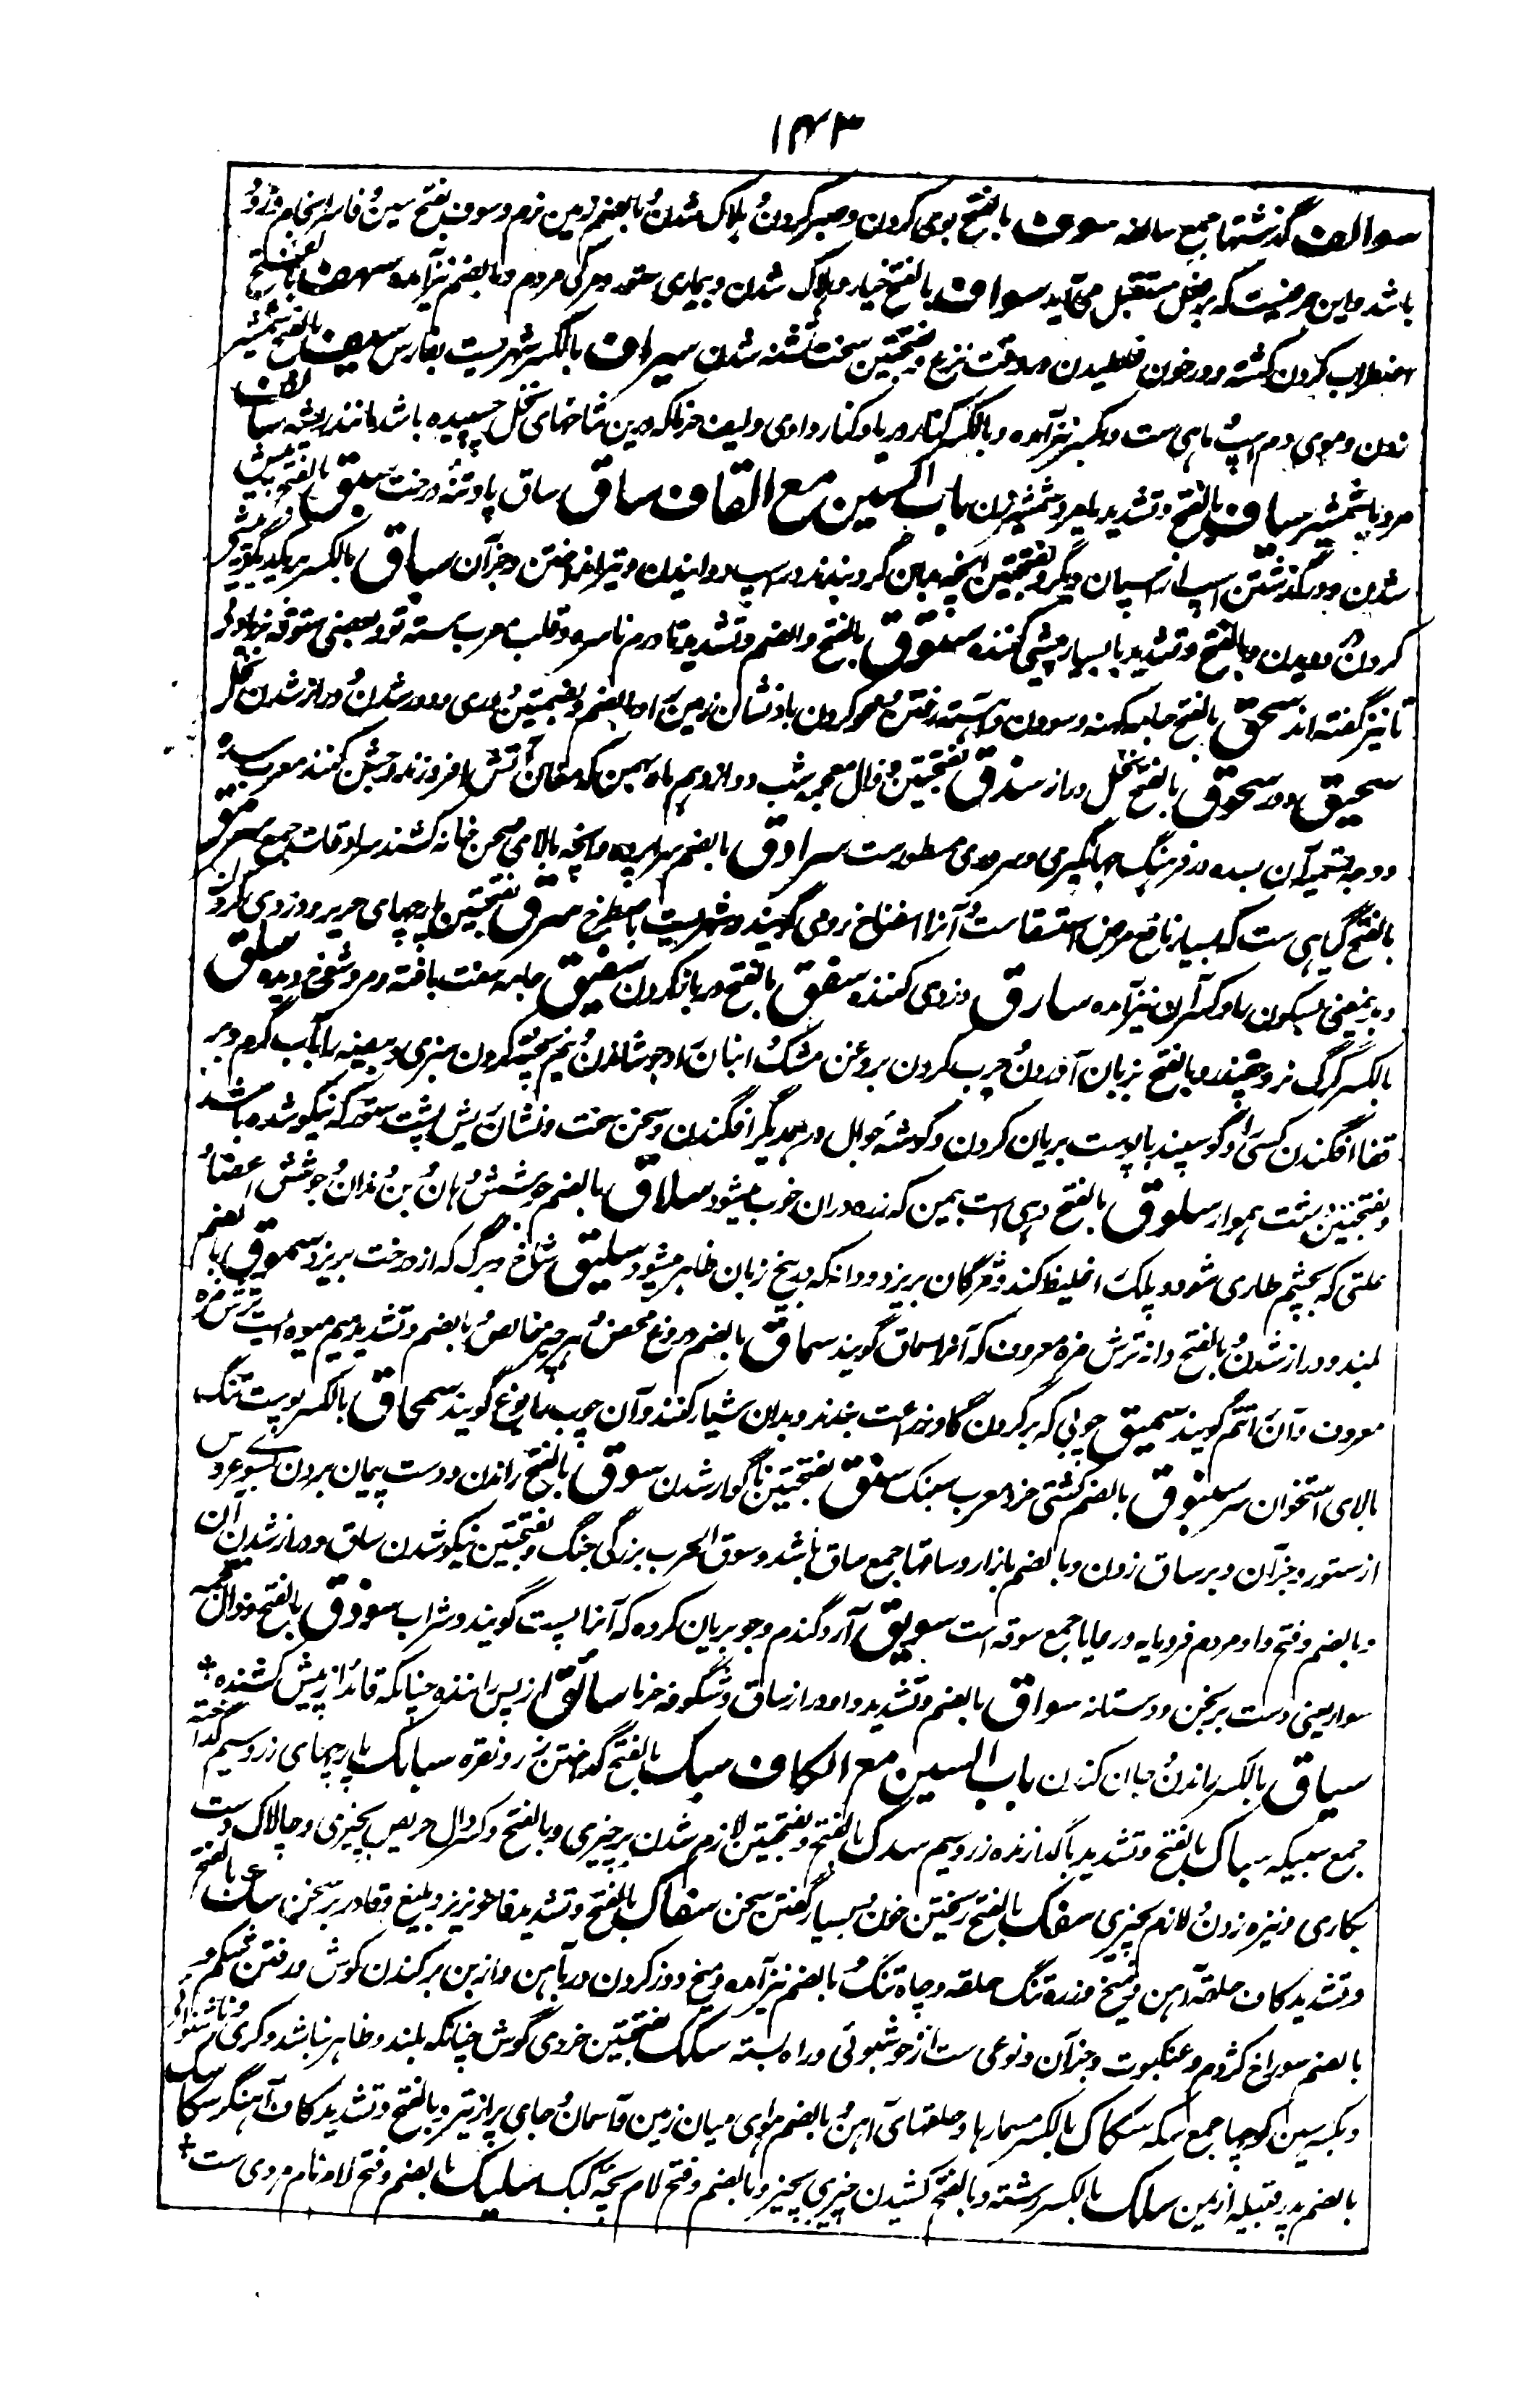 ۱۴۳
سوالف گذشتها جمع سالفه سوف بالفتح بوی کردن و صبر کردن و هلاک شدن و بالضم زمین نرم و سوف بفتح سین و فا سرانجام و زود
باشد و این حرفیست که بر فعل مستقبل می‌آید سواف بالفتح خیار و هلاک شدن و بیماری ستور و مرگی مردم و بالضم نیز آمده سهف بالفتح
اضطراب کردن کشته و در خون غلطیدن در وقت نزع و بفتحتین سخت تشنه شدن سیراف بالکسر شهریست بفارس سیف بالفتح شمشیر
زدن و موی دم اسپ و ماهی ست و بکسر نیز آمده و بالکسر کناره دریا و کنار وادی و لیف خرما که در بن شاخهای نخل چسپیده باشد مانند ریشه سائف
مرد با شمشیر سیاف بالفتح و تشدید یا مرد شمشیرزن باب السین مع القاف ساق ساق پا و تنهٔ درخت سبق بالفتح پیش
شدن و در گذشتن اسپ از اسپان دیگر و بفتحتین آنچه بدان گرو بندند در اسپ دوانیدن و تیر انداختن و جز آن سباق بالکسر بر یکدیگر پیشی
کردن و دویدن و بالفتح و تشدید با بسیار پیشی کننده ستوق بالفتح و الضم و تشدید تا درم ناسره و قلب معرب سته تو و بعضی ستوقه بزیادتی
تا نیز گفته اند سحق بالفتح جامه کهنه و سودن و آهسته رفتن و محو کردن باد نشان زمین را و بالضم و بضمتین دوری و دور شدن و دراز شدن نخل
سحیق دور سحوق بالفتح نخل دراز سذق بفتحتین و ذال معجمه شب دوازدهم ماه بهمن که مغان آتش افروزند و جشن کنند معرب سده
و وجه تسمیه آن بسده در فرهنگ جهانگیری و سروری مسطور ست سرادق بالضم سراپرده و آنچه بالای صحن خانه کشند سرادقات جمع سرمق
بالفتح گیاهی ست که بسیار نافع مرض استسقا ست و آنرا اسفناخ رومی گویند و شهریست باصطخر سرق بفتحتین پارچهای حریر و دزدی کردن
و بدین معنی بسکون را و کسر آن نیز آمده سارق دزدی کننده سفق بالفتح در باز کردن سفیق جامه سفت بافته و مرد شوخ دیده سلق
بالکسر گرگ نر و چقندر و بالفتح بزبان آوردن و چرب کردن بروغن مشک و انبان را و جوشاندن و نیم پخته کردن سبزی و بیضه را بآب گرم و بر
قفا افگندن کسی را و گوسپند با پوست بریان کردن و گوشهٔ جوال در همدیگر افگندن و سخن سخت و نشان ریش پشت ستور که نیکو شده باشد
و بفتحتین دشت هموار سلوق بالفتح دهی است بیمن که زره دران خوب میشود سلاق بالضم جوشش دهان و بن دندان و جوشش اعضا و
علتی که بچشم طاری شود و پلک را غلیظ کند و مژگان بریزد و دانه که در بیخ زبان ظاهر میشود سلیق شاخ و برگ که از درخت بریزد سموق بالضم
بلند و دراز شدن و بالفتح دانه ترش مزه معروف که آنرا سماق گویند سماق بالضم دروغ محض و هرچیز خالص و بالضم و تشدید میم میوه است ترش مزه
معروف و آنرا تتم گویند سمیق چوبی که بر گردن گاو زراعت بندند و بدان شیار کنند و آن چوب را یوغ گویند سمحاق بالکسر پوست تنک
بالای استخوان سر سنبوق بالضم کشتی خرد معرب سنبک سنق بفتحتین ناگوار شدن سوق بالفتح راندن و دست پیمان بردن بسوی عروس
از ستور و جز آن و بر ساق زدن و بالضم بازار و ساقها جمع ساق باشد و سوق الحرب بزرگی جنگ و بفتحتین نیکو شدن ساق و دراز شدن آن
و بالضم و فتح واو مردم فرومایه و رعایا جمع سوقه است سویق آرد گندم و جو بریان کرده که آنرا پست گویند و شراب سوذق بالفتح و ذال معجمه
سوار یعنی دست برنجن و دستانه سواق بالضم و تشدید واو دراز ساق و شگوفه خرما سائق از پس راننده چنانکه قائد از پیش کشنده *
سیاق بالکسر راندن و جان کندن باب السین مع الکاف سبک بالفتح گداختن زر و نقره سبائک پارچهای زر و سیم گداخته
جمع سبیکه سباک بالفتح و تشدید با گدازنده زر و سیم سدک بالفتح و بفتحتین لازم شدن بر چیزی و بالفتح و کسر دال حریص بچیزی و چالاک دست
بکاری و نیزه زدن و لازم بچیزی سفک بالفتح ریختن خون و بسیار گفتن سخن سفاک بالفتح و تشدید فا خونریز و بلیغ و قادر بر سخن سک بالفتح
و تشدید کاف حلقهٔ آهن و میخ و زره تنگ حلقه و چاه تنگ و بالضم نیز آمده و میخ دوز کردن در بآهن و از بن برکندن گوش و رفتن شکم و
بالضم سوراخ کژدم و عنکبوت و جز آن و نوعی ست از خوشبوئی و راه بسته سکک بفتحتین خردی گوش چنانکه بلند و ظاهر نباشد و کری و ناشنوائی
و بکسر سین کوچها جمع سکه سکاک بالکسر مسمارها و حلقهای آهن و بالضم هوای میان زمین و آسمان و جای پر از تیر و بالفتح و تشدید کاف آهنگر سکاسک
بالضم پدر قبیله از یمن سلک بالکسر رشته و بالفتح کشیدن چیزی بچیز و بالضم و فتح لام بچهٔ کبک سلیک بالضم و فتح لام نام مردی ست *